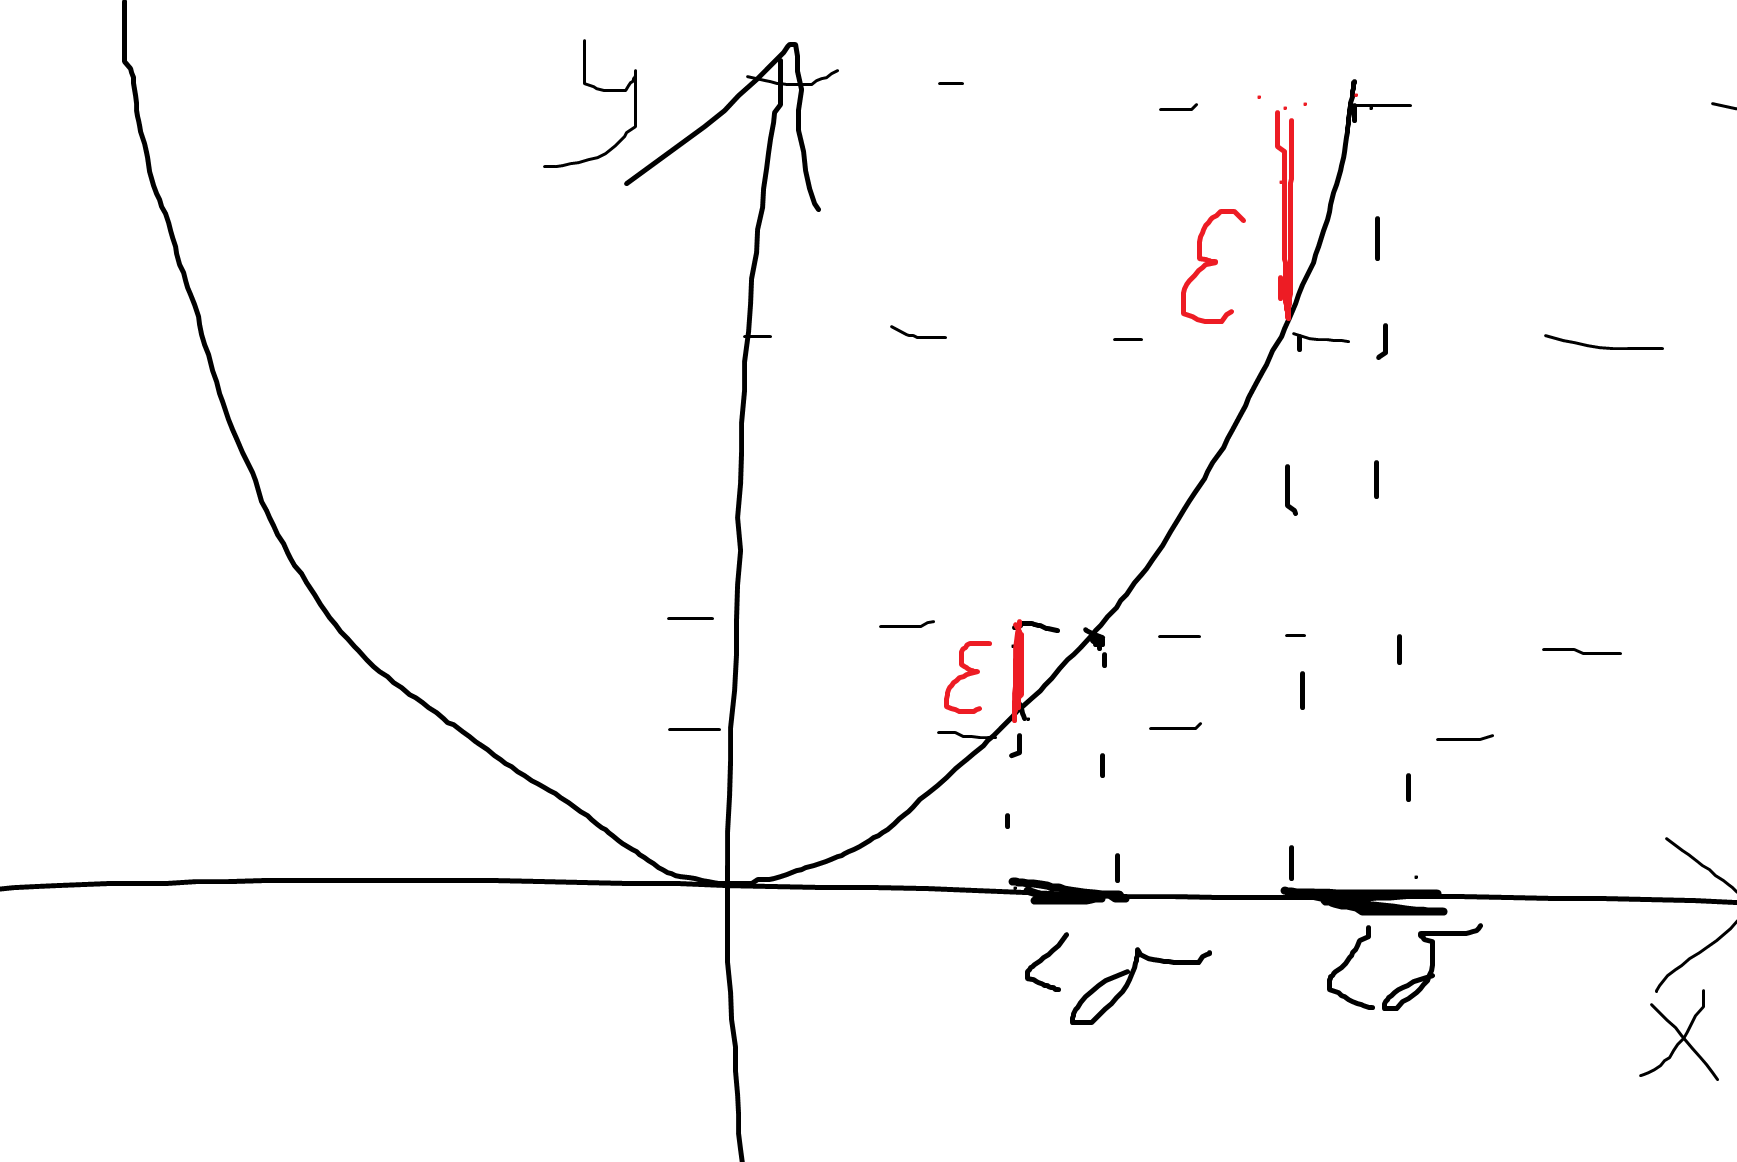 y
ε
ε
<δ <δ
x